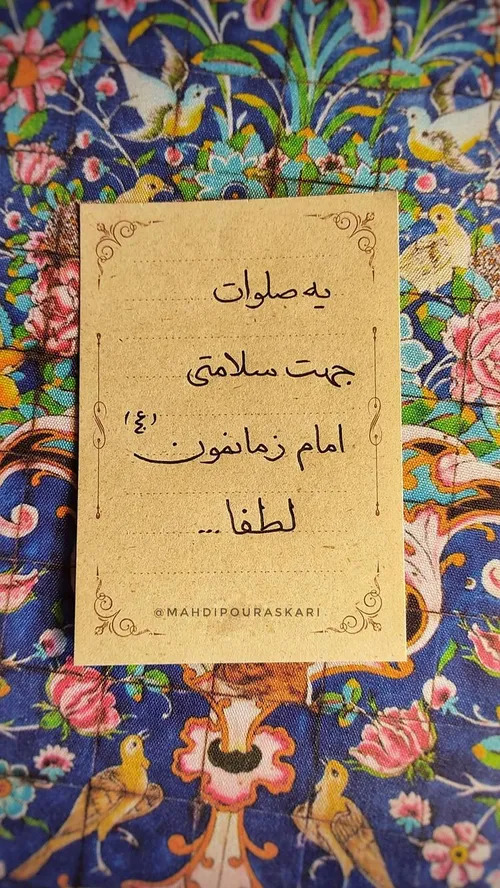 یه صلوات
جهت سلامتی
امام زمانمون (عج)
لطفا...
@MAHDIPOURASKARI